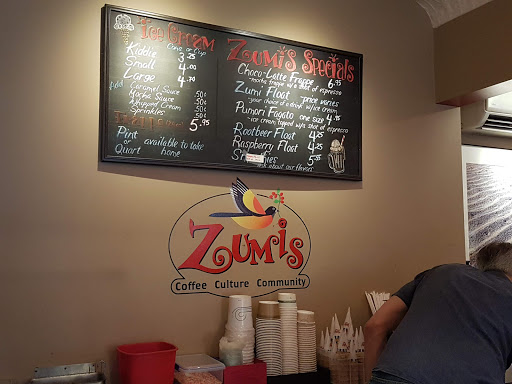 Ice Cream
Cone or Cup
Kiddie 3.25
Small 4.00
Large 4.70
Add Caramel Sauce 50¢
Mocha Sauce 50¢
Whipped Cream 50¢
Sprinkles 50¢
5.95
Pint or Quart available to take home
Zumi's Specials
Choco-Latte Frappe 6.95
mocha frappe w/a shot of espresso
Zumi Float price varies
your choice of drink w/ice cream
Punori Fogato one size 4.95
ice cream topped w/a shot of espresso
Rootbeer Float 4.25
Raspberry Float 4.25
5.55
ask about our flavors
Zumi's
Coffee Culture Community